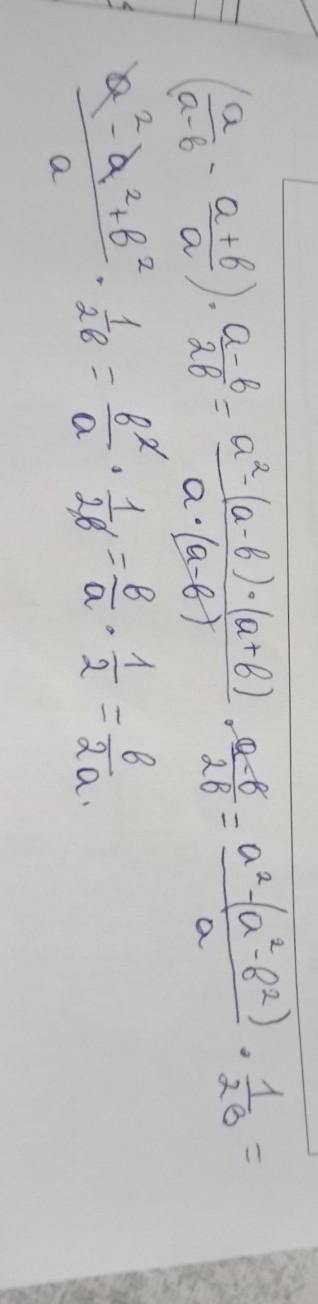 (a/(a-b) - (a+b)/a) · (a-b)/2b = (a²-(a-b)·(a+b))/(a·(a-b)) · (a-b)/2b = (a²-(a²-b²))/a · 1/2b =
(a²-a²+b²)/a · 1/2b = b²/a · 1/2b = b/a · 1/2 = b/2a.